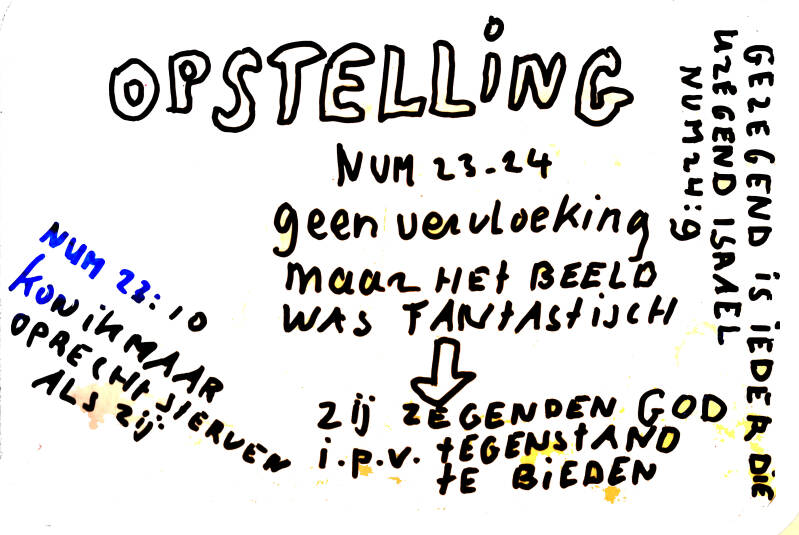 OPSTELLiNG
NUM 23-24
geen vervloeking
maar HEt BEELD
WAS FANtAStiSCH
zij ZEGENDEN GOD
i.p.v. tEGENStAND
tE BiEDEN
NUM 23:10
KON iK MAAR
OPRECHt StERVEN
ALS zij
GEZEGEND iS iEDER DiE
UZEGEND ISRAEL
NUM 24:9